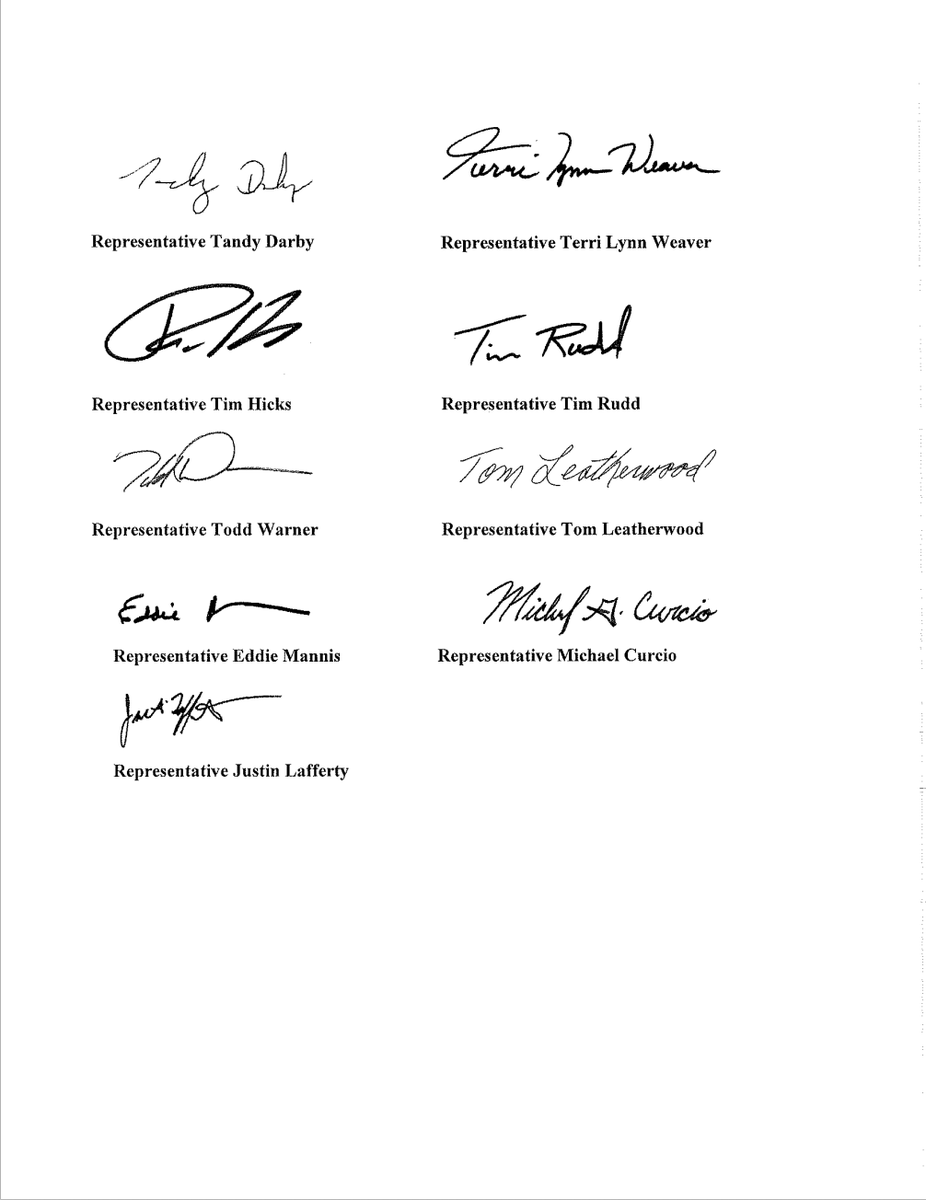 Tandy Darby Terri Lynn Weaver
Representative Tandy Darby Representative Terri Lynn Weaver
Tim Rudd
Representative Tim Hicks Representative Tim Rudd
Todd Tom Leatherwood
Representative Todd Warner Representative Tom Leatherwood
Eddie Michael G. Curcio
Representative Eddie Mannis Representative Michael Curcio
Justin Lafferty
Representative Justin Lafferty